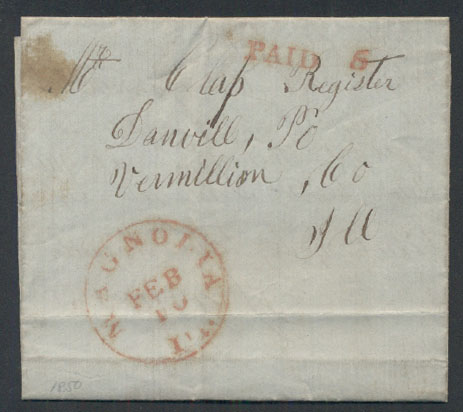 PAID 5
Mr Clap Register
Danvill, Po
Vermillion, Co
Ill
MAGNOLIA Il.
FEB
10
1850